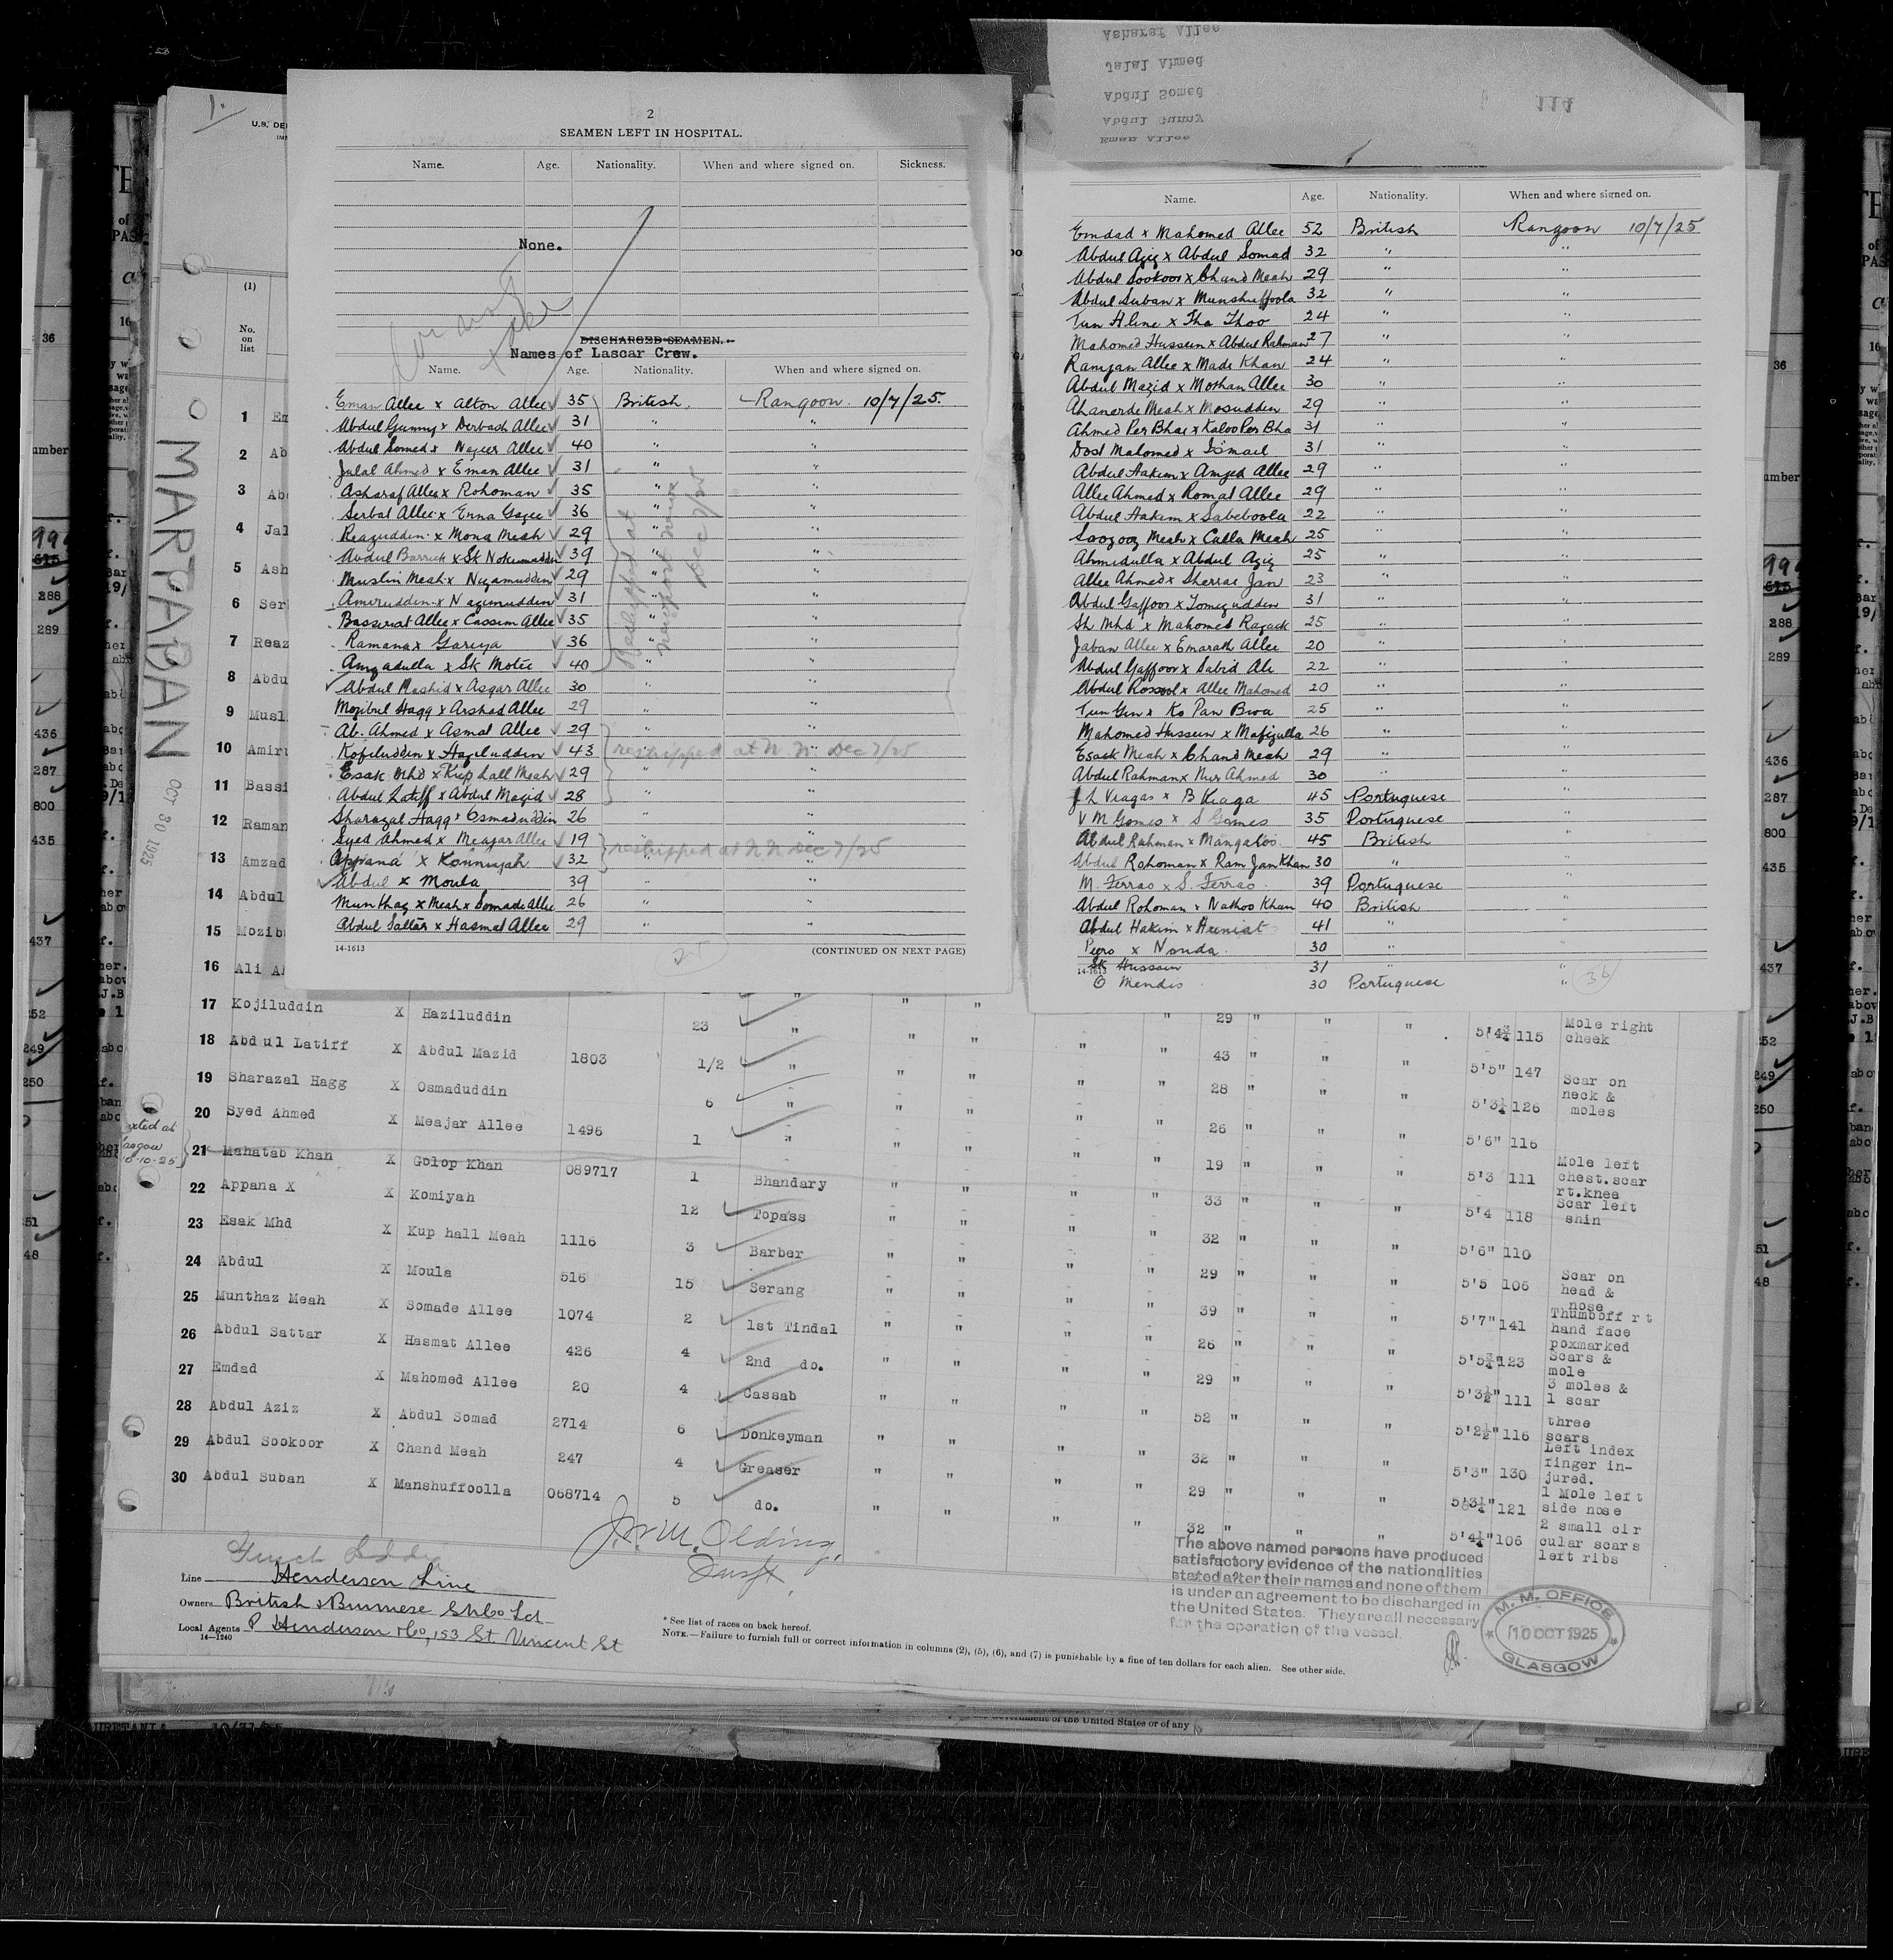 2
SEAMEN LEFT IN HOSPITAL.
Name. Age. Nationality. When and where signed on. Sickness.
None.
DISCHARGED SEAMEN.
Names of Lascar Crew.
Name. Age. Nationality. When and where signed on.
Eman Allee x Alton Allee 35 British. Rangoon. 10/7/25.
Abdul Gunny x Derbach Allee 31 " "
Abdul Somed x Nazeer Allee 40 " "
Jalal Ahmed x Eman Allee 31 " "
Asharaf Allee x Rohoman 35 " "
Serbat Allee x Enna Gazee 36 " "
Reazuddin x Mona Meah 29 " "
Abdul Barrick x Sk Nokumaddin 39 " "
Muslim Meah x Nizamuddin 29 " "
Amiruddin x Nazimuddin 31 " "
Basserat Allee x Cassim Allee 35 " "
Ramana x Gariya 36 " "
Amzadulla x Sk Motee 40 " "
Abdul Rashid x Asgar Allee 30 " "
Mozibul Haqq x Arshad Allee 29 " "
Ab. Ahmed x Asmat Allee 29 " "
Kofiluddin x Haziluddin 43 " "
Esak Mhd x Kup hall Meah 29 " "
Abdul Latiff x Abdul Mazid 28 " "
Sharazal Haqq x Osmaduddin 26 " "
Syed Ahmed x Meajar Allee 19 " "
Appana x Konniyah 32 " "
Abdul x Moula 39 " "
Munthaz x Meah x Somade Allee 26 " "
Abdul Sattar x Hasmat Allee 29 " "
Reshipped at Newport News Dec 7/25
reshipped at N.N. Dec 7/25
reshipped at N.N. Dec 7/25
14-1613 (CONTINUED ON NEXT PAGE)
25
Asharaf Allee
Jalal Ahmed
Abdul Somed
Abdul Gunny
Eman Allee
114
Name. Age. Nationality. When and where signed on.
Emdad x Mahomed Allee 52 British Rangoon 10/7/25
Abdul Aziz x Abdul Somad 32 " "
Abdul Sookoor x Chand Meah 29 " "
Abdul Suban x Munshuffoola 32 " "
Tun Hline x Tha Thoo 24 " "
Mahomed Hussein x Abdul Rahman 27 " "
Ramzan Allee x Made Khan 24 " "
Abdul Mazid x Mothan Allee 30 " "
Ahanarde Meah x Mosudden 29 " "
Ahmed Per Bhai x Kaloo Per Bha 31 " "
Dost Mahomed x Ismail 31 " "
Abdul Hakim x Amzed Allee 29 " "
Allee Ahmed x Romat Allee 29 " "
Abdul Hakim x Sabeboola 22 " "
Soozooz Meah x Calla Meah 25 " "
Ahmidulla x Abdul Aziz 25 " "
Allee Ahmed x Sherrae Jan 23 " "
Abdul Gaffoor x Tomezudden 31 " "
Sh Mhd x Mahomed Razack 25 " "
Jaban Allee x Emarath Allee 20 " "
Abdul Gaffoor x Sabid Ale 22 " "
Abdul Rosool x Allee Mahomed 20 " "
Tun Gin x Ko Pan Bwa 25 " "
Mahomed Hussein x Mafizulla 26 " "
Esack Meah x Chand Meah 29 " "
Abdul Rahman x Nur Ahmed 30 " "
J L Viagas x B Viaga 45 Portuguese "
V M Gomes x S Gomes 35 Portuguese "
Abdul Rahman x Mangaloo 45 British "
Abdul Rohoman x Ram Jan Khan 30 " "
M. Ferrao x S. Ferrao 39 Portuguese "
Abdul Rohoman x Nathoo Khan 40 British "
Abdul Hakim x Huniat 41 " "
Pero x Nonda 30 " "
14-1613 Sk Hussain 31 " "
O Mendis 30 Portuguese "
36
U.S. DE
(1)
No. on list
MARTABAN
OCT 30 1925
1 Em
2 Ab
3 Abd
4 Jal
5 Ash
6 Ser
7 Reaz
8 Abdu
9 Musl
10 Amiru
11 Bassi
12 Raman
13 Amzad
14 Abdul
15 Mozib
16 Ali A
17 Kojiluddin X Haziluddin 23 " " " " 29 " " " 5'4¾ 115 Mole right cheek
18 Abdul Latiff X Abdul Mazid 1803 1/2 " " " " 43 " " " 5'5" 147
19 Sharazal Hagg X Osmaduddin 6 " " " " 28 " " " 5'3½ 126 Scar on neck & moles
20 Syed Ahmed X Meajar Allee 1496 1 " " " " 26 " " " 5'6" 116
21 Mahatab Khan X Golop Khan 089717 1 Bhandary " " " 19 " " " 5'3 111 Mole left chest.scar rt.knee
22 Appana X X Komiyah 12 Topass " " " 33 " " " 5'4 118 Scar left shin
23 Esak Mhd X Kup hall Meah 1116 3 Barber " " " 32 " " " 5'6" 110
24 Abdul X Moula 516 15 Serang " " " 29 " " " 5'5 106 Scar on head & nose
25 Munthaz Meah X Somade Allee 1074 2 1st Tindal " " " 39 " " " 5'7" 141 Thumboff rt hand face poxmarked
26 Abdul Sattar X Hasmat Allee 426 4 2nd do. " " " 26 " " " 5'5¾" 123 Scars & mole
27 Emdad X Mahomed Allee 20 4 Cassab " " " 29 " " " 5'3½" 111 3 moles & 1 scar
28 Abdul Aziz X Abdul Somad 2714 6 Donkeyman " " " 52 " " " 5'2½" 116 three scars
29 Abdul Sookoor X Chand Meah 247 4 Greaser " " " 32 " " " 5'3" 130 Left index finger in-jured.
30 Abdul Suban X Manshuffoolla 068714 5 do. " " " 29 " " " 5'3¼" 121 1 Mole left side nose
32 " " " 5'4¼" 106 2 small cir cular scars left ribs
Line Henderson Line
Owners British & Burmese SNCo Ltd
Local Agents P Henderson & Co, 153 St Vincent St
14—1240
J.W.M. Olding,
* See list of races on back hereof.
NOTE.—Failure to furnish full or correct information in columns (2), (5), (6), and (7) is punishable by a fine of ten dollars for each alien. See other side.
The above named persons have produced
satisfactory evidence of the nationalities
stated after their names and none of them
is under an agreement to be discharged in
the United States. They are all necessary
for the operation of the vessel.
M. M. OFFICE
10 OCT 1925
GLASGOW
Government of the United States or of any